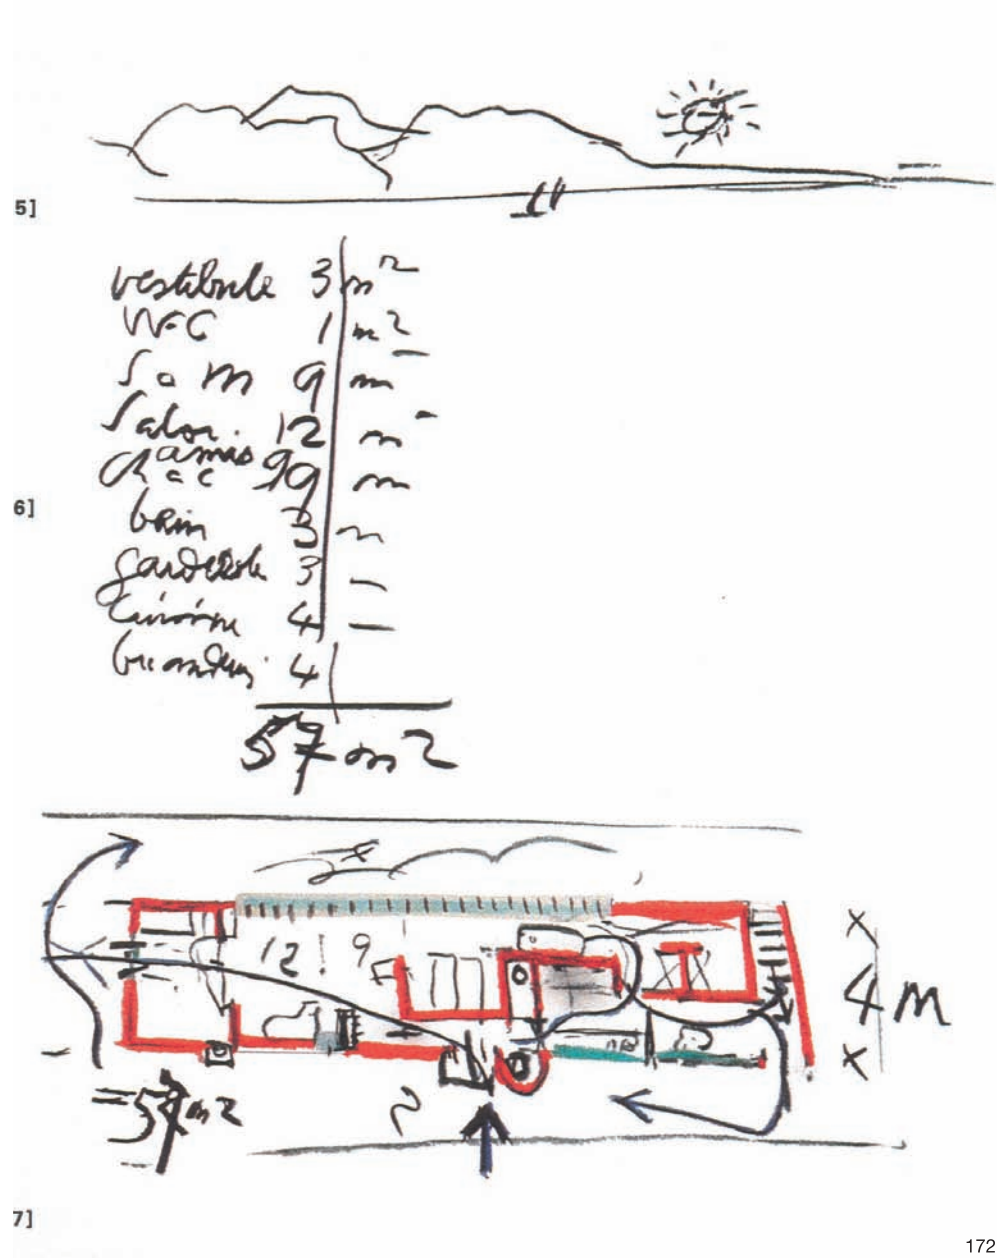 5]
vestibule 3 m²
W-C 1 m²
S a m 9 m
Salon. 12 m
ch amis
a c 9 m
bain 3 m
garderobe 3 —
cuisine 4 —
buanderie 4
57 m²
6]
12 9
4 M
= 57 m²
7]
172